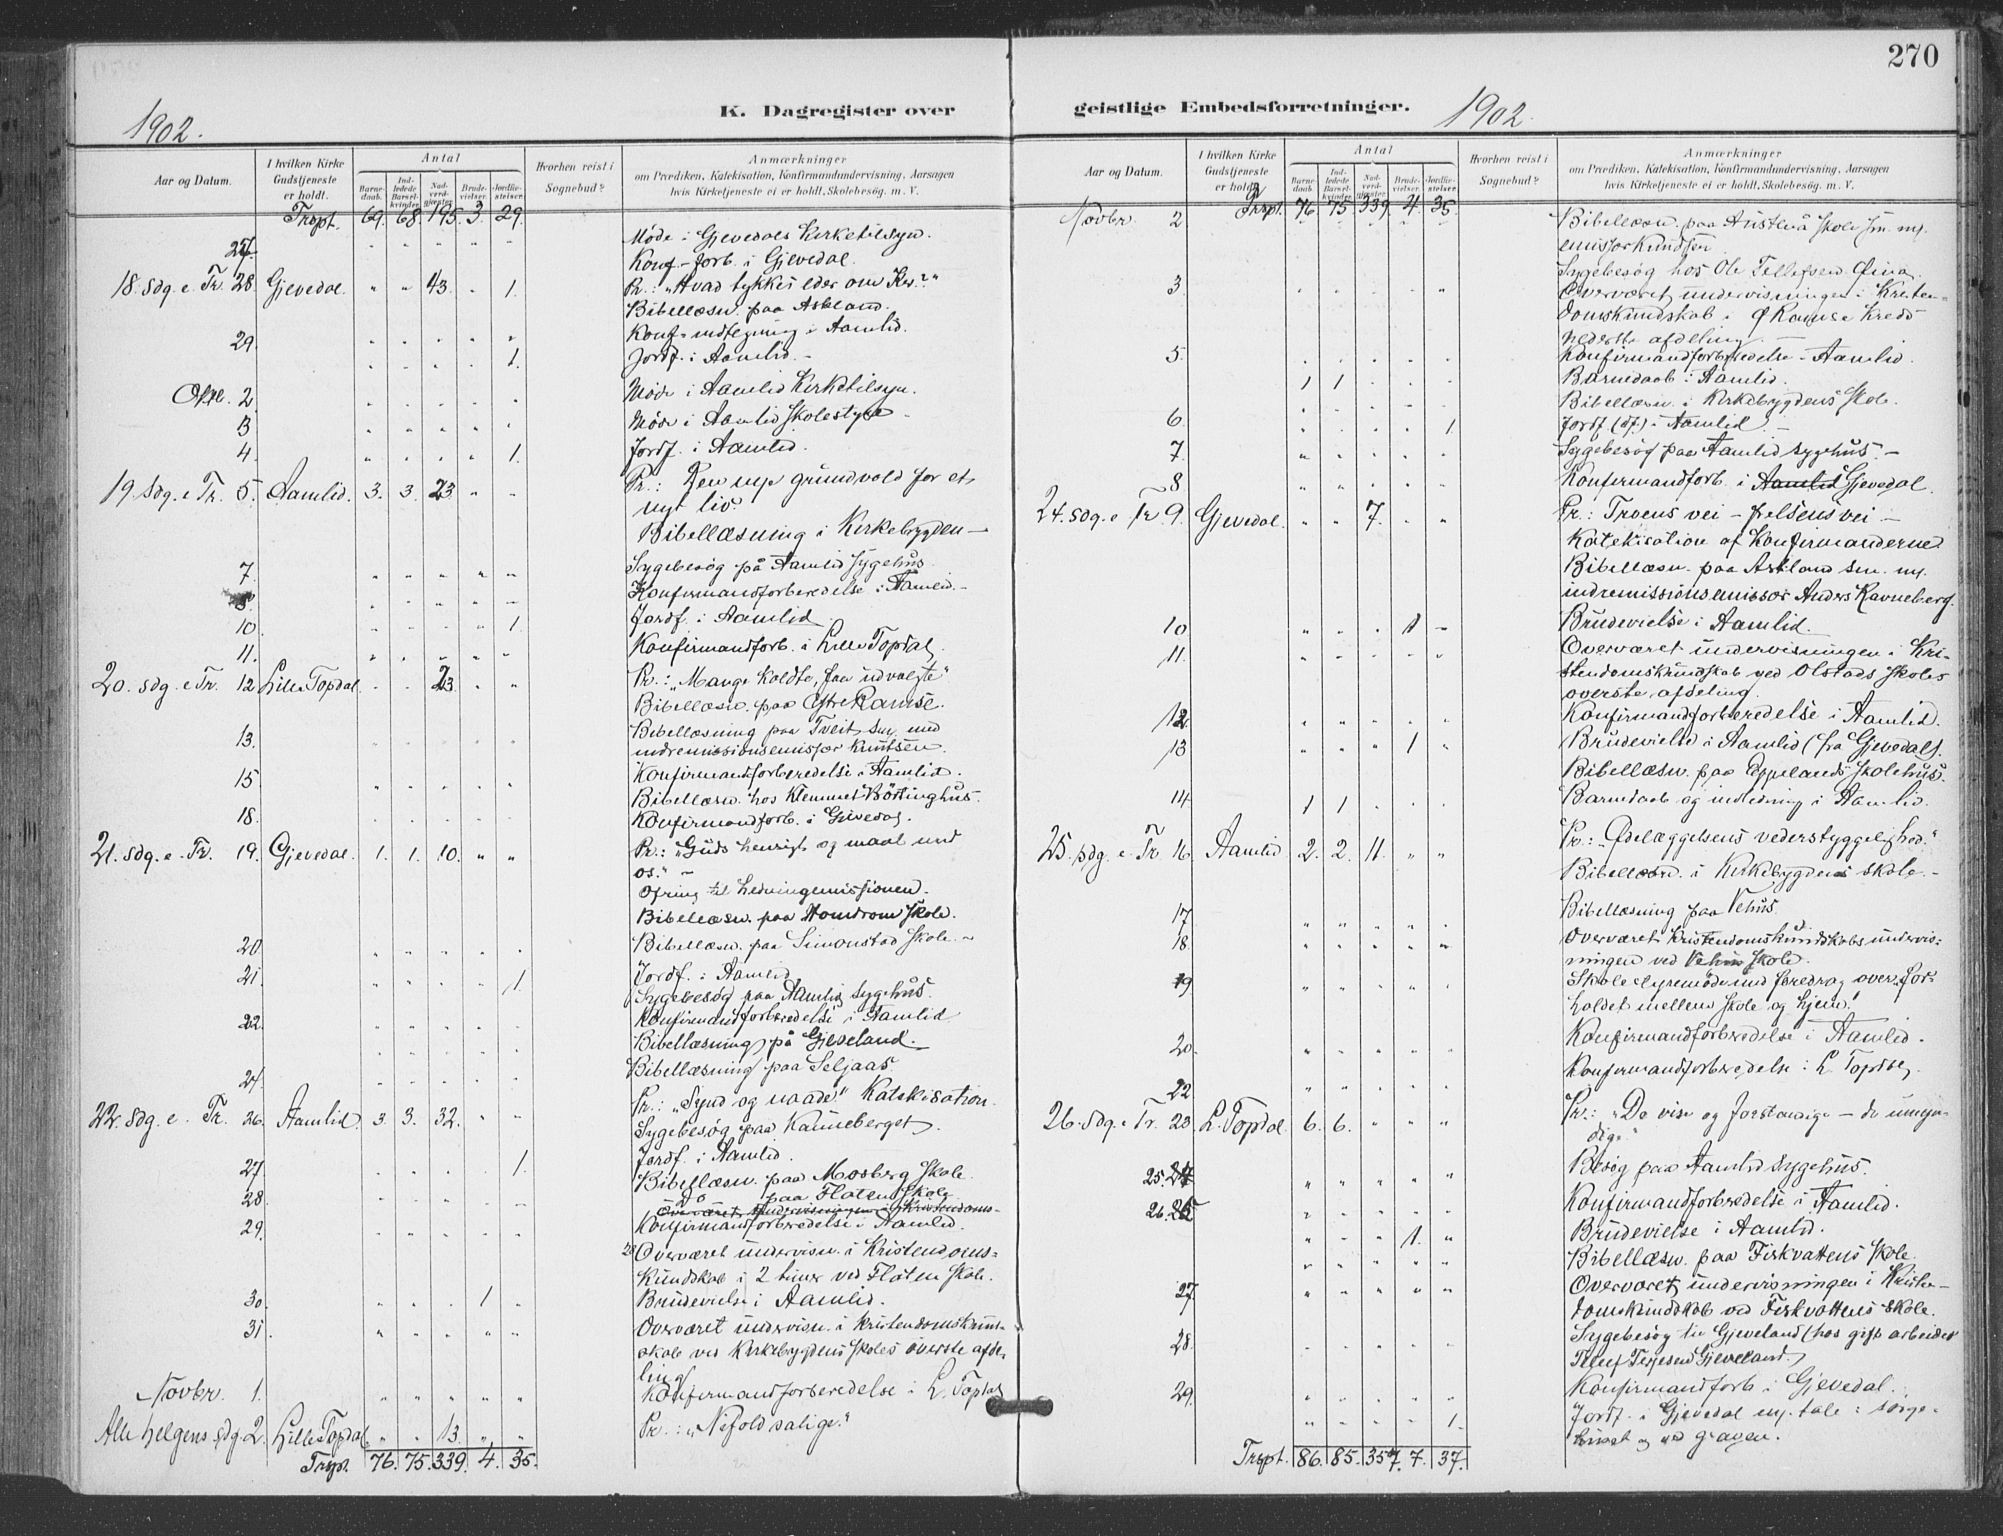 270
K. Dagregister over
1902.
Aar og Datum.
I hvilken Kirke Gudstjeneste er holdt.
Antal
Barne-daab.
Ind-ledede Barsel-kvinder.
Nad-verd-gjester.
Brude-vielser.
Jordfæ-stelser.
Hvorhen reist i Sognebud?
Anmærkninger
om Prædiken, Katekisation, Konfirmandundervisning, Aarsagen
hvis Kirketjeneste ei er holdt, Skolebesøg. m. V.
Trspt. 69. 68. 195. 3. 29.
Møde i Gjevedals Kirketilsyn.
27. Konf-forb. i Gjevedal.
18. sdg. e. Tr. 28. Gjevedal. " " 43. " 1. Pr.: "Hvad tykkes eder om Krs?"
Bibellæsn. paa Askland.
29. Konf-indtegning i Aamlid.
1. Jordf. i Aamlid.
Okt. 2. Møde i Aamlid Kirketilsyn.
3. Møde i Aamlid Skolestyre
4. 1. Jordf. i Aamlid.
19. Sdg. e Tr. 5. Aamlid. 3. 3. 23. " " Pr.: Den nye grundvold for et
nyt liv.
Bibellæsning i Kirkebygden —
7. Sygebesøg på Aamlid sygehus.
8. Konfirmandforberedelse i Aamlid.
10. 1. Jordf. i Aamlid
11. Konfirmandforb. i Lille Topdal.
20. sdg. e Tr. 12 Lille Topdal. 23. Pr.: "Mange kaldte, faa udvalgte"
Bibellæsn. paa Østre Ramse.
13. Bibellæsning paa Tveit sm. med
indremissionsemissær Knutsen.
15. Konfirmandforberedelse i Aamlid.
Bibellæsn. hos Klemmet Bøttinghus.
18. Konfirmandforb. i Gjevedal.
21. sdg. e. Tr. 19. Gjevedal. 1. 1. 10. " " Pr.: "Guds hensigt og maal med
os." —
Ofring til Hedningemissionen.
Bibellæsn. paa Homdrom Skole.
20. Bibellæsn. paa Simonstad Skole. —
21. 1. Jordf. i Aamlid
Sygebesøg paa Aamlid sygehus.
22. Konfirmandforberedelse i Aamlid
Bibellæsning på Gjeveland.
24. Bibellæsning paa Seljaas.
22. sdg. e. Tr. 26. Aamlid. 3. 3. 32. " " Pr.: "Synd og naade" Katekisation.
Sygebesøg paa Kauneberget.
27. 1. Jordf. i Aamlid.
Bibellæsn. paa Mosberg Skole.
28. Do paa Flaten Skole
Overværet undervisningen i Kristendoms-
29. Konfirmandforberedelse i Aamlid.
28 Overværet undervisn. i Kristendoms-
Kundskab i 2 timer ved Flaten Skole.
30. 1 Brudevielse i Aamlid.
31. Overværet undervisn. i kristendomskund-
skab ved Kirkebygdens skoles øverste afde-
ling
Novbr. 1. Konfirmandforberedelse i L. Topdal
Alle helgens sdg. 2. Lille Topdal " " 13. " " Pr.: "Nifold salige."
Trspt. 76. 75. 339. 4. 35.
geistlige Embedsforretninger.
1902.
Aar og Datum.
I hvilken Kirke Gudstjeneste er holdt.
Antal
Barne-daab.
Ind-ledede Barsel-kvinder.
Nad-verd-gjester.
Brude-vielser.
Jordfæ-stelser.
Hvorhen reist i Sognebud?
Anmærkninger
om Prædiken, Katekisation, Konfirmandundervisning, Aarsagen
hvis Kirketjeneste ei er holdt, Skolebesøg. m. V.
Trspt. 76 75 339. 4. 35.
Novbr 2 Bibellæsn. paa Austenå Skole sm. m.
emissær Knudsen
Sygebesøg hos Ole Tellefsen Øina.
3 Overværet undervisningen i Kristen-
domskundskab i Ø Ramse Kreds
nederste afdeling —
5. Konfirmandforberedelse - Aamlid.
1 1 Barnedaab i Aamlid.
Bibellæsn. i Kirkebygdens Skole.
6. 1. Jordf. i Aamlid. —
7. Sygebesøg paa Aamlid sygehus. —
8 Konfirmandforb. i Aamlid Gjevedal.
24. sdg. e Tr 9. Gjevedal " " 7. " " Pr.: Troens vei — frelsens vei —
Katekisation af Konfirmanderne
Bibellæsn. paa Askland sm. m.
indremissionsemissær Anders Ravneberg.
10 1 Brudevielse i Aamlid.
11. Overværet undervisningen i Kri-
stendomskundskab ved Olstads Skoles
øverste afdeling.
12. Konfirmandforberedelse i Aamlid.
13 1 Brudevielse i Aamlid (fra Gjevedal).
Bibellæsn. paa Eppelands Skolehus.
14. 1 1 Barnedaab og indledning i Aamlid.
25. sdg. e Tr. 16. Aamlid 2. 2. 11. " " Pr.: "Ødelæggelsens vederstyggelighed."
Bibellæsn. i Kirkebygdens skole. —
17 Bibellæsning paa Vehus.
18. Overværet kristendomskundskabsundervis-
ningen ved Vehus skole.
19 Skolestyremøde med foredrag over "for-
holdet mellem skole og hjem"
20. Konfirmandforberedelse i Aamlid.
22 Konfirmandforberedelse i L. Topdal
26. sdg. e Tr. 23. L. Topdal 6. 6. " " " Pr.: "De vise og forstandige — de umyn-
dige"
25. 24 Besøg paa Aamlid sygehus.
26. 25 Konfirmandforberedelse i Aamlid.
1. Brudevielse i Aamlid.
Bibellæsn. paa Fiskvattens Skole.
27 Overværet undervisningen i Kristen-
domskundskab ved Fiskvattens skole.
28. Sygebesøg til Gjeveland (hos gift arbeider
Tellef Terjesen Gjeveland.)
29. Konfirmandforb. i Gjevedal.
1. Jordf. i Gjevedal m. tale i sørge-
huset og ved graven.
Trspt. 86. 85. 357. 7. 37.